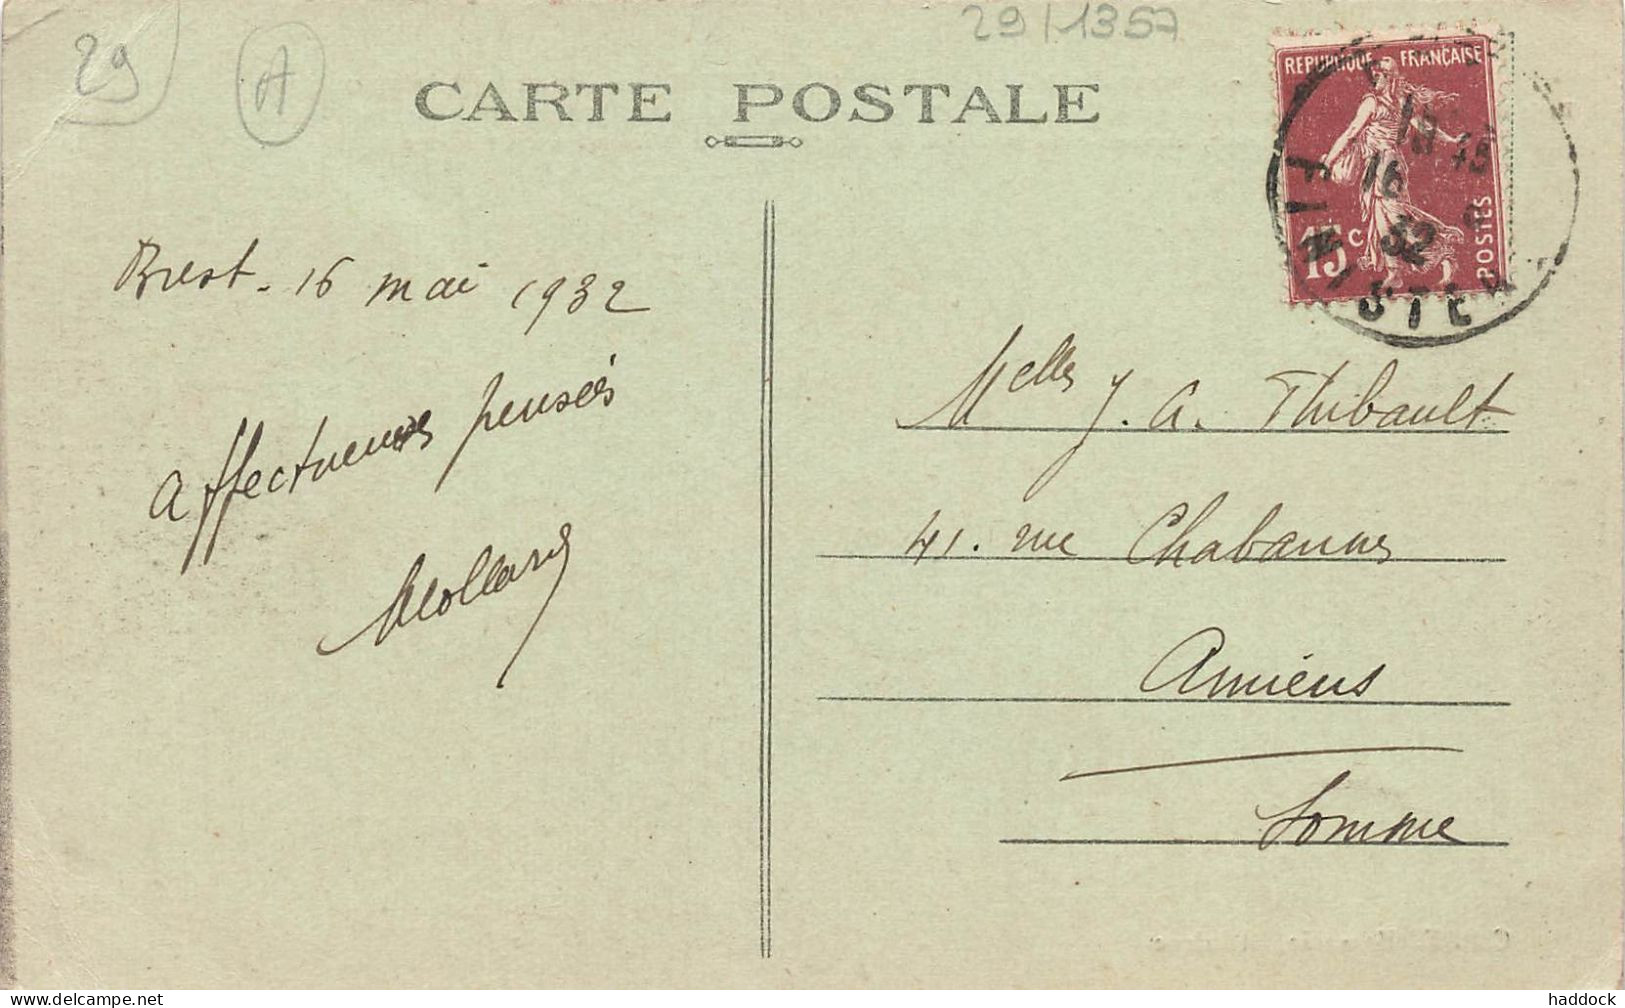 29
A
29/1357
CARTE POSTALE
REPUBLIQUE FRANÇAISE
15c
POSTES
16
32
FINISTE
Brest. 16 mai 1932
Affectueuses pensées
Melles J. A. Thibault
41. rue Chabannes
Amiens
Somme
haddock